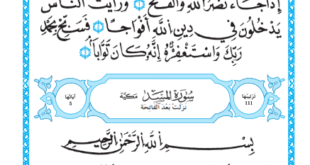 إِذَا جَاءَ نَصْرُ اللَّهِ وَالْفَتْحُ ۝ وَرَأَيْتَ النَّاسَ
يَدْخُلُونَ فِي دِينِ اللَّهِ أَفْوَاجًا ۝ فَسَبِّحْ بِحَمْدِ
رَبِّكَ وَاسْتَغْفِرْهُ إِنَّهُ كَانَ تَوَّابًا ۝
سُورَةُ الْمَسَدِ مَكِّيَّة
نزلت بعد الفاتحة
ترتيبها
111
آياتها
5
بِسْمِ اللَّهِ الرَّحْمَنِ الرَّحِيمِ